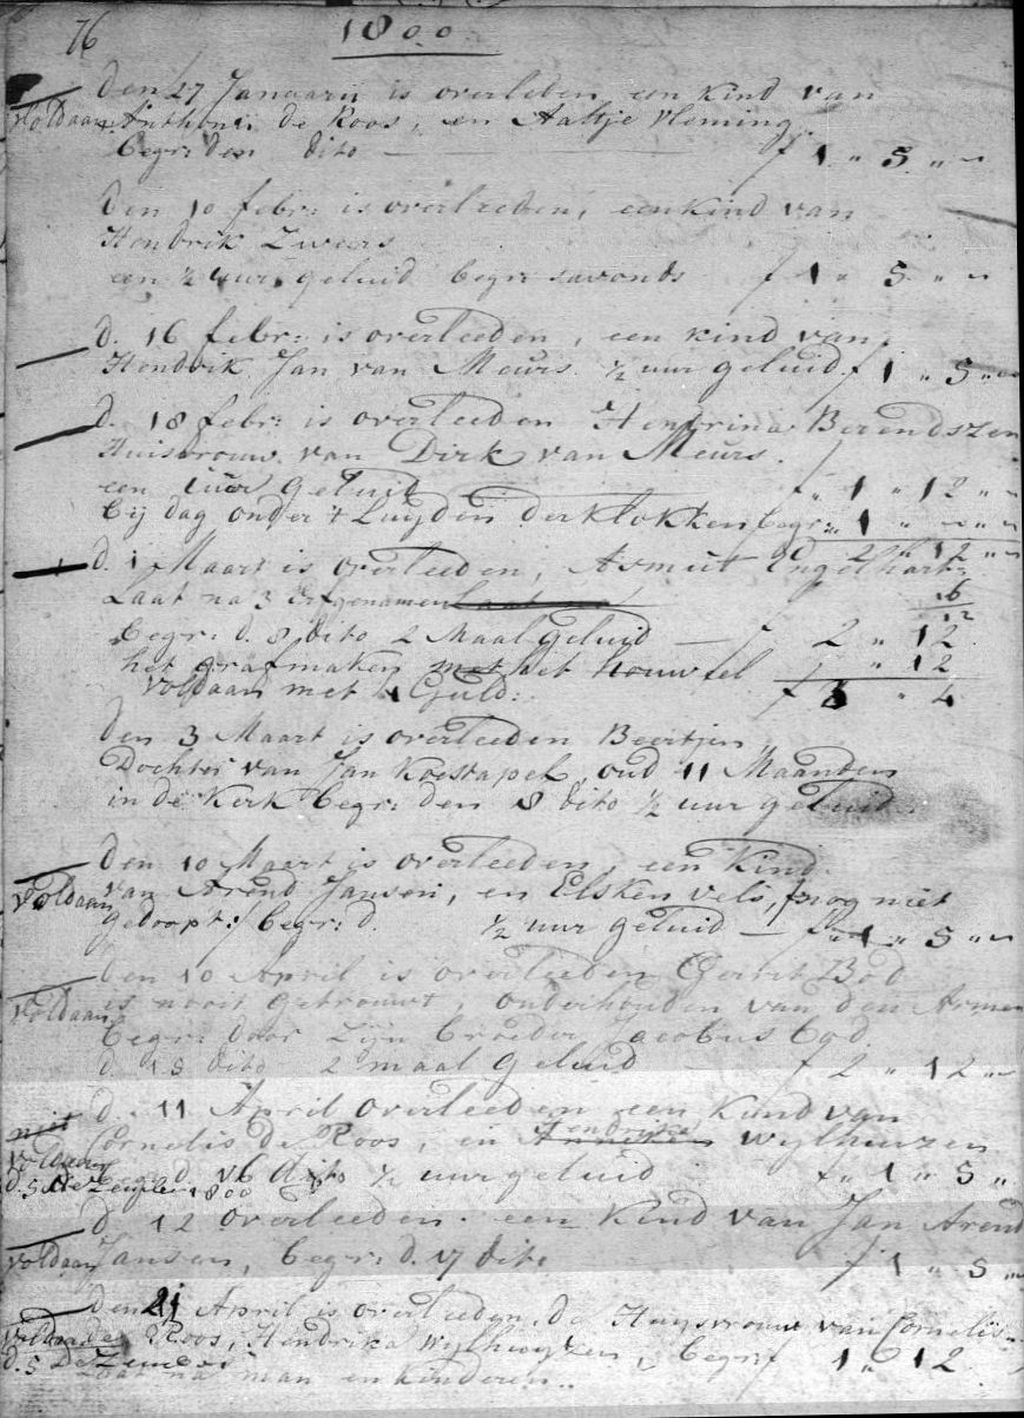 76
1800
Den 27 Januarij is overleden een kind van
Voldaan Anthonij de Roos, en Aaltje Vleming
begr: den dito — f 1 " 5 " –
Den 10 febr: is overleeden, een kind van
Hendrik Zweers
een ½ uur geluid begr: savonds f 1 " 5 " –
d. 16 febr: is overleeden, een kind van
Hendrik Jan van Meurs. ½ uur geluid f 1 " 5 " –
d. 18 febr: is overleeden Hendrina Berendszen
Huisvrouw van Dirk van Meurs.
een uur geluid f " 1 " 12 " –
bij dag onder 't Luyden der Klokken begr: " 1 " – " –
2 " 12 " –
d. 1 Maart is overleeden, Asmut Engelhart
Laat na 3 Erfgenamen
begr: d. 8 dito 2 Maal geluid — f 2 " 12
het grafmaken met het houweel f " 12
voldaan met Guld: f 3 " 4
Den 3 Maart is overleeden Beertjen
Dochter van Jan Koestapel, oud 11 Maanden
in de Kerk begr: den 8 dito ½ uur geluid.
Den 10 Maart is overleeden, een Kind
voldaan van Arend Jansen, en Elsken Vels, /: nog niet
gedoopt :/ begr: d. ½ uur geluid — f 1 " 5 " –
Den 10 April is overleeden Gerrit Bod
voldaan is nooit getrouwt, onderhouden van den Armen
begr: door Zijn broeder Jacobus bod.
d. 15 dito 2 maal geluid f 2 " 12 " –
d. 11 April overleeden een Kind van
niet Cornelis de Roos, en Hendrika Wylhuizen
voldaan d. 16 dito ½ uur geluid f " 1 " 5 "
d. 5 Dezember 1800
d. 12 overleeden een Kind van Jan Arend
voldaan Jansen, begr: d. 17 dito f 1 " 5 " –
Den 21 April is overleeden, de Huysvrouw van Cornelis
voldaan de Roos, Hendrika Wylhuyzen, begr: f 1 " 12
d. 5 Dezember
Laat na man en kinderen..